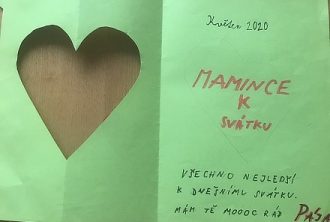 Květen 2020
MAMINCE
K
SVÁTKU
VŠECHNO NEJLEPŠÍ
K DNEŠNÍMU SVÁTKU.
MÁM TĚ MOOOC RÁD